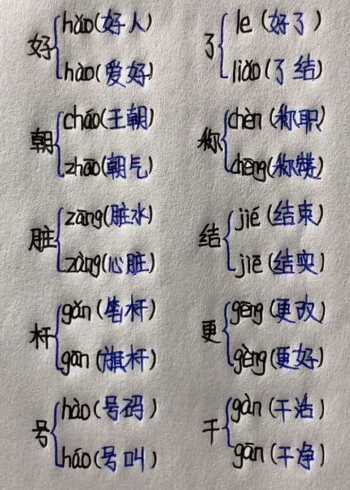 好
hǎo(好人)
hào(爱好)
朝
cháo(王朝)
zhāo(朝气)
脏
zāng(脏水)
zàng(心脏)
杆
gǎn(笔杆)
gān(旗杆)
号
hào(号码)
háo(号叫)
了
le(好了)
liǎo(了结)
称
chèn(称职)
chēng(称赞)
结
jié(结束)
jiē(结实)
更
gēng(更改)
gèng(更好)
干
gàn(干活)
gān(干净)